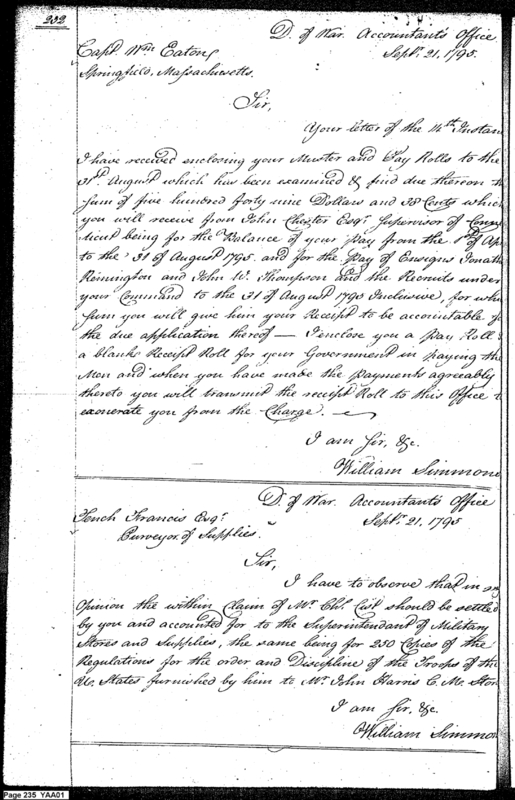 232
D. of War. Accountant's Office
Sept. 21, 1795.
Capt. Wm Eaton,
Springfield, Massachusetts.
Sir,
Your letter of the 14th Instan
I have received enclosing your Muster and Pay Rolls to the
31st August which has been examined & find due thereon
Sum of five hundred forty nine Dollars and 38 Cents which
you will receive from John Chester Esqr. Supervisor of Conne
ticut being for the Balance of your Pay from the 1st of Ap
to the 31 of August 1795. and for the Pay of Ensigns Jonath
Remington and John W. Thompson and the Recruits under
your Command to the 31 of August 1795 Inclusive, for whi
Sum you will give him your Receipt to be accountable f
the due application thereof — I inclose you a Pay Roll &
a blank Receipt Roll for your Government in paying the
Men and when you have made the Payments agreeably
thereto you will transmit the receipt Roll to this Office t
exonerate you from the Charge. —
I am Sir, &c.
William Simmons
D. of War. Accountant's Office
Sept. 21, 1795
Tench Francis Esqr.
Purveyor of Supplies.
Sir,
I have to observe that in my
Opinion the within Claim of Mr. Chs. Cist should be settled
by you and accounted for to the Superintendant of Military
Stores and Supplies, the same being for 250 Copies of the
Regulations for the order and Discipline of the Troops of the
U. States furnished by him to Mr. John Harris C. M. Stor
I am Sir, &c.
William Simmon
Page 235 YAA01